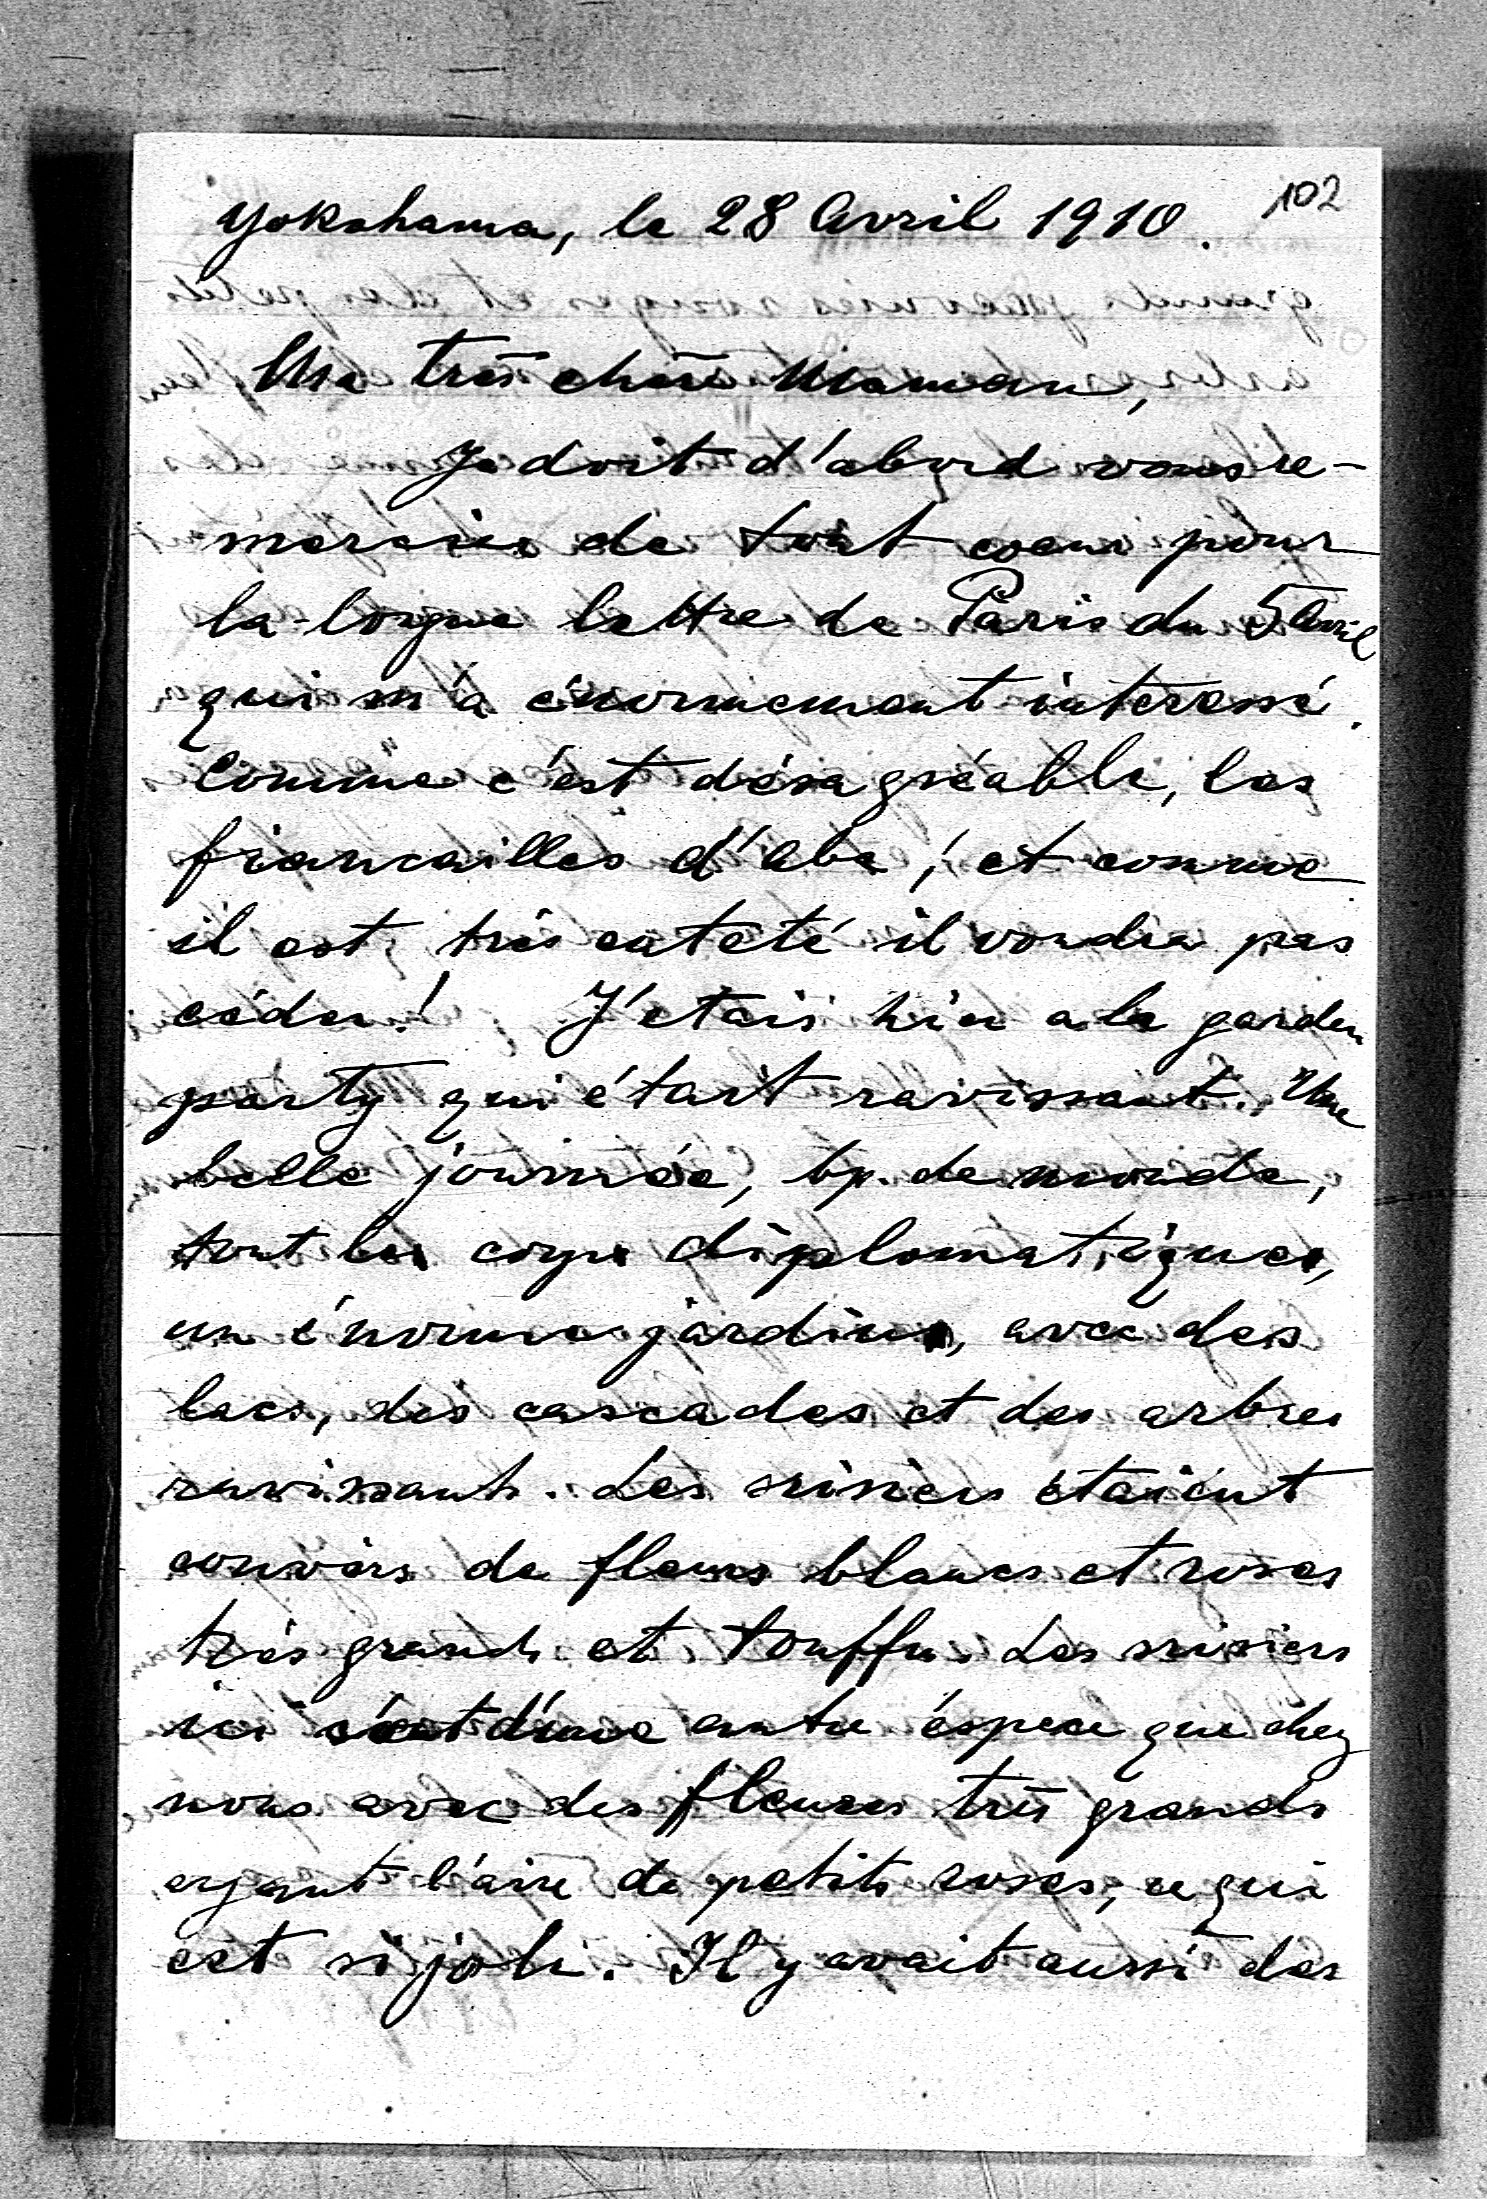 102
Yokohama, le 28 Avril 1910.
Ma très chère Maman,
Je doit d'abord vous re-
mercier de tout coeur pour
la longue lettre de Paris du 5 Avril
qui m'a énormement interessé.
Comme c'est désagréable, les
fiancailles d'Abe, et comme
il est très enteté il voudra pas
céder! J'etais hier a la garden
party qui était ravissant. Une
belle journée, bp. de monde,
tout les corps diplomatiques,
un énorme jardin, avec des
lacs, des cascades et des arbres
ravissants. Les srisiers étaient
couvèrs de fleurs blancs et roses
très grands et touffu. Les srisiers
ici d'une autre éspece que chez
nous avec des fleures très grands
ayant l'aire de petits roses, ce qui
est si joli. Il y avait aussi des